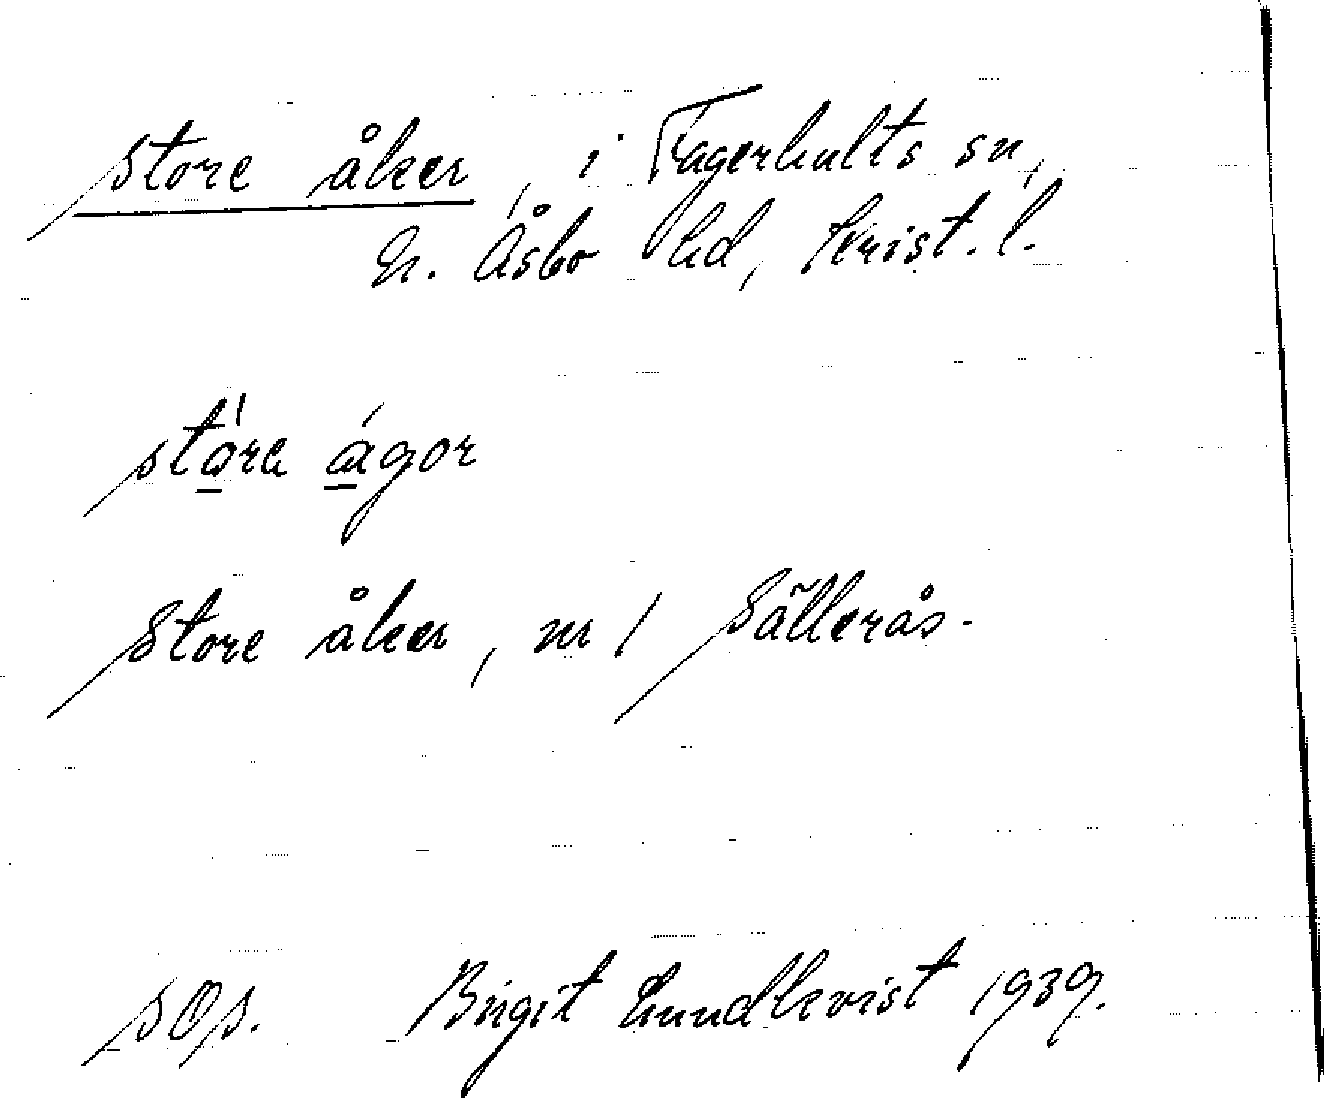 Store åker, i Fagerhults sn,
N. Åsbo hd, Krist. l.
stọ́ra ágor
Store åker, nr 1 Sällerås.
SOS. Birgit Lundkvist 1939.